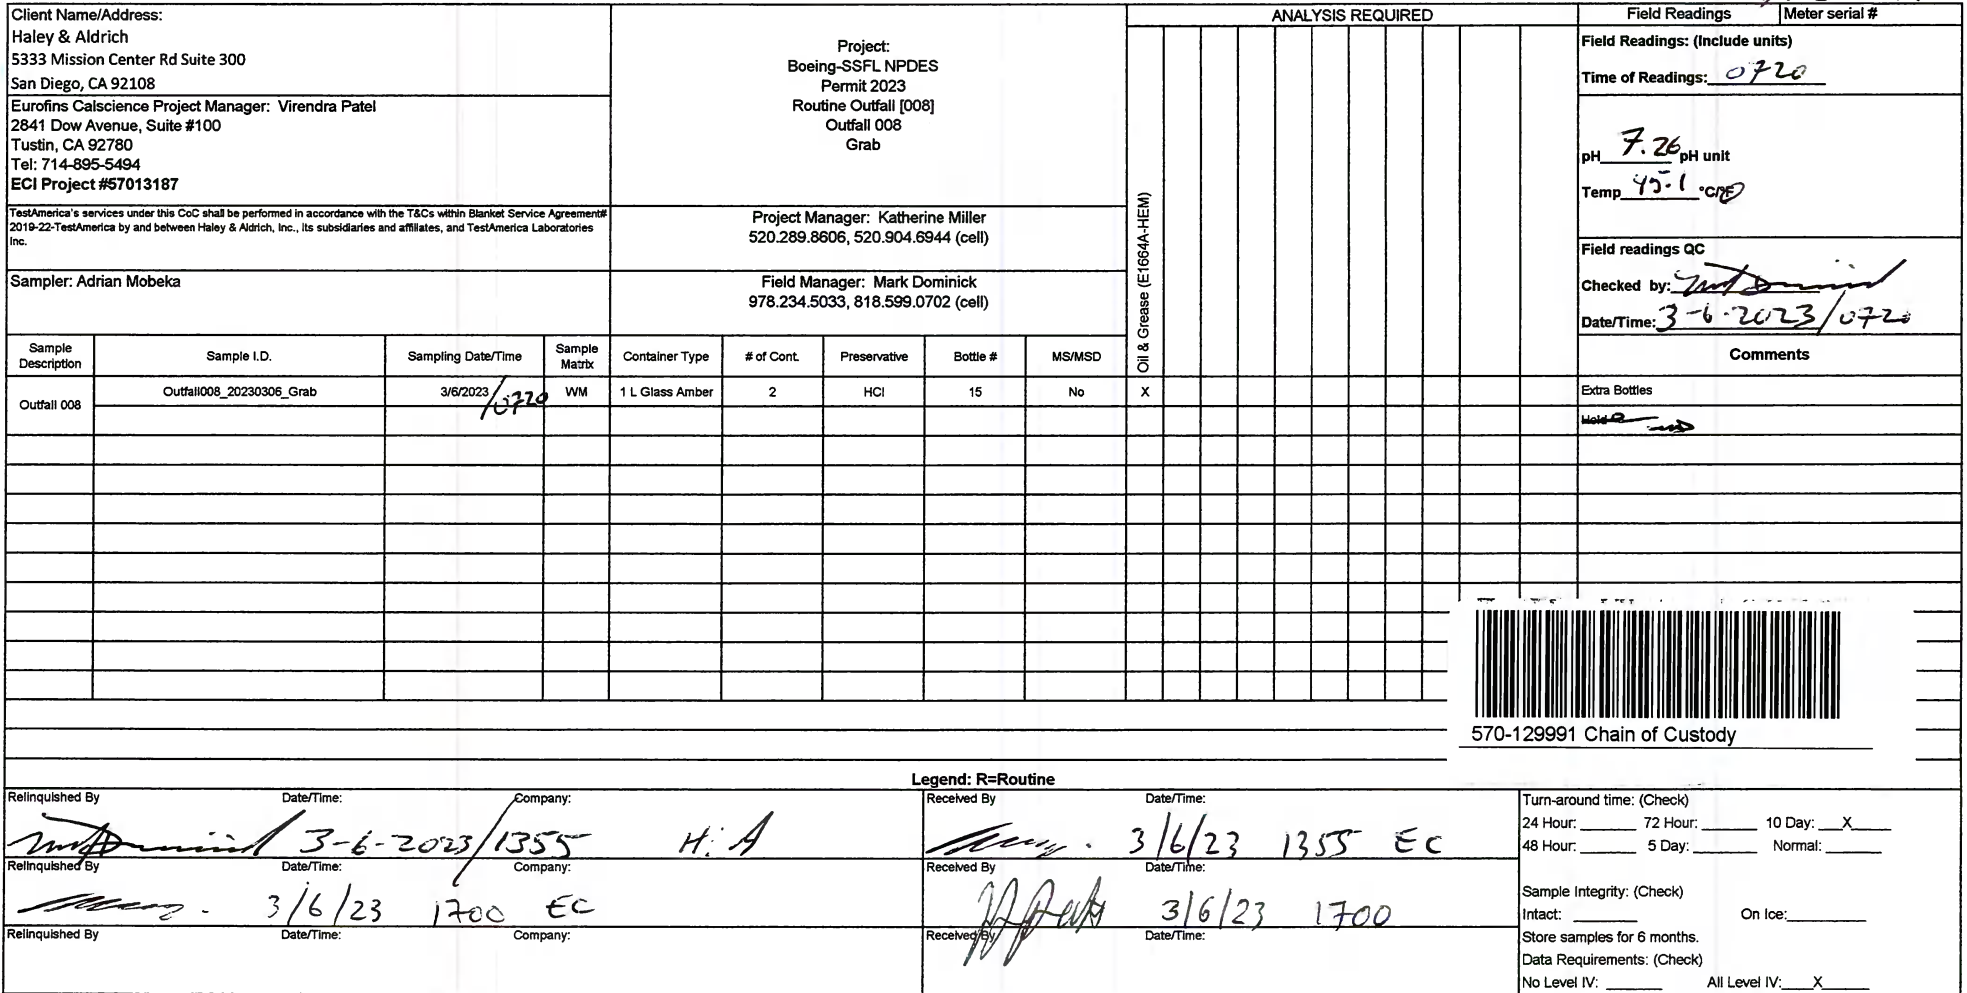 Client Name/Address:
Haley & Aldrich
5333 Mission Center Rd Suite 300
San Diego, CA 92108
Eurofins Calscience Project Manager: Virendra Patel
2841 Dow Avenue, Suite #100
Tustin, CA 92780
Tel: 714-895-5494
ECI Project #57013187
TestAmerica's services under this CoC shall be performed in accordance with the T&Cs within Blanket Service Agreement#
2019-22-TestAmerica by and between Haley & Aldrich, Inc., its subsidiaries and affiliates, and TestAmerica Laboratories
Inc.
Sampler: Adrian Mobeka
Project:
Boeing-SSFL NPDES
Permit 2023
Routine Outfall [008]
Outfall 008
Grab
Project Manager: Katherine Miller
520.289.8606, 520.904.6944 (cell)
Field Manager: Mark Dominick
978.234.5033, 818.599.0702 (cell)
ANALYSIS REQUIRED
Oil & Grease (E1664A-HEM)
Field Readings Meter serial #
Field Readings: (Include units)
Time of Readings: 0720
pH 7.26 pH unit
Temp 45.1 °C/°F
Field readings QC
Checked by:
Date/Time: 3-6-2023/0720
Sample Description Sample I.D. Sampling Date/Time Sample Matrix Container Type # of Cont. Preservative Bottle # MS/MSD Comments
Outfall 008 Outfall008_20230306_Grab 3/6/2023 /0720 WM 1 L Glass Amber 2 HCl 15 No X Extra Bottles
Hold
570-129991 Chain of Custody
Legend: R=Routine
Relinquished By Date/Time: Company:
3-6-2023/1355 H:A
Received By Date/Time:
3/6/23 1355 EC
Relinquished By Date/Time: Company:
3/6/23 1700 EC
Received By Date/Time:
3/6/23 1700
Relinquished By Date/Time: Company:
Received By Date/Time:
Turn-around time: (Check)
24 Hour: 72 Hour: 10 Day: X
48 Hour: 5 Day: Normal:
Sample Integrity: (Check)
Intact: On Ice:
Store samples for 6 months.
Data Requirements: (Check)
No Level IV: All Level IV: X